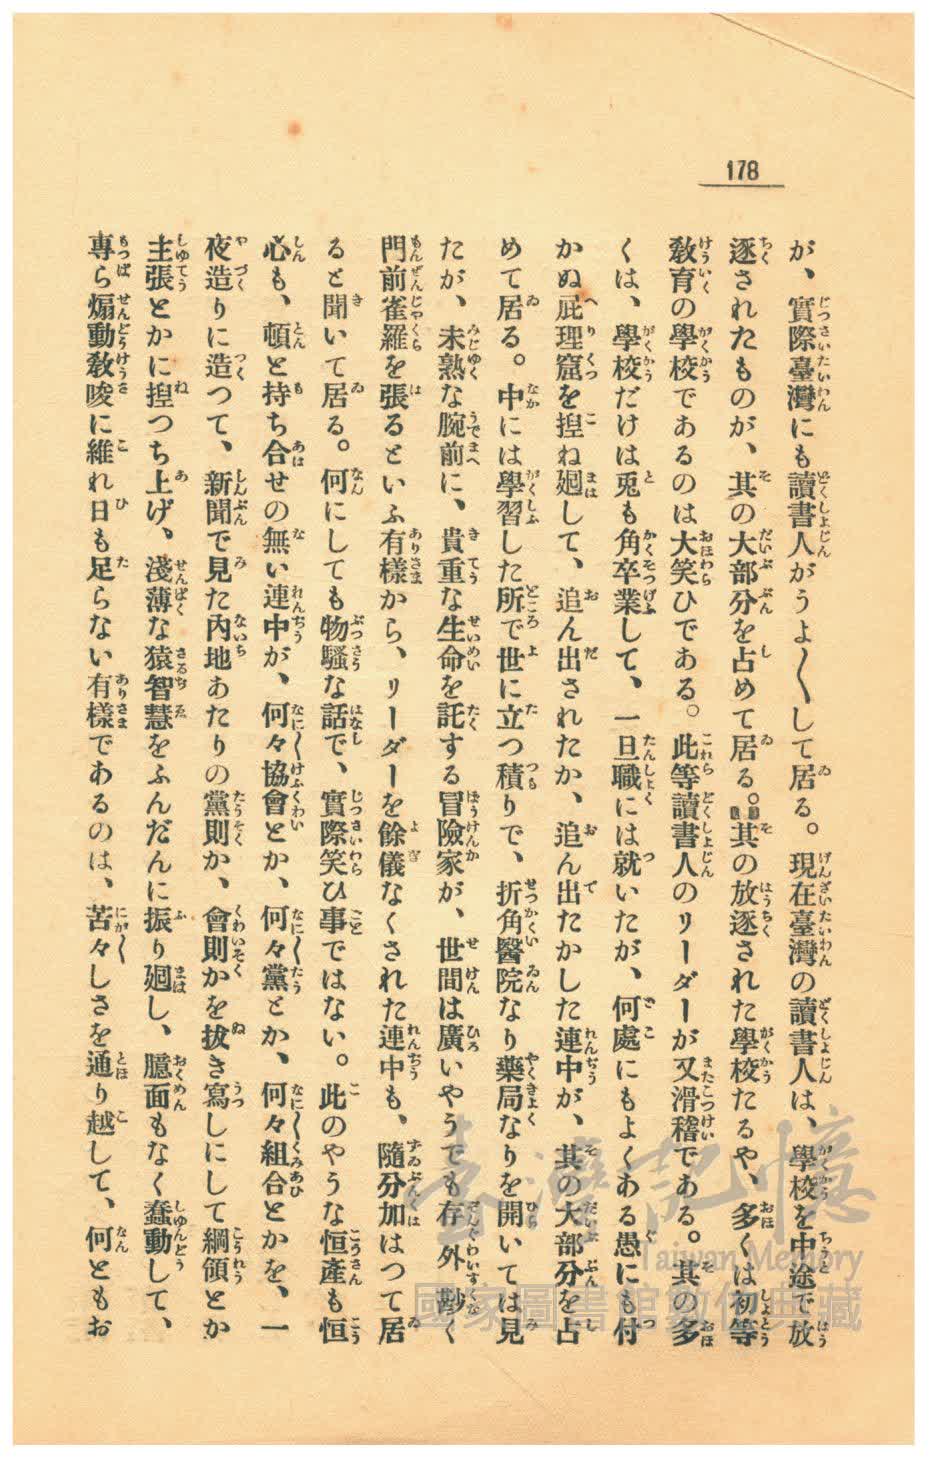 178
が、實際臺灣にも讀書人がうよ〱して居る。現在臺灣の讀書人は、學校を中途で放
逐されたものが、其の大部分を占めて居る。其の放逐された學校たるや、多くは初等
敎育の學校であるのは大笑ひである。此等讀書人のリーダーが又滑稽である。其の多
くは、學校だけは兎も角卒業して、一旦職には就いたが、何處にもよくある愚にも付
かぬ屁理窟を揑ね廻して、追ん出されたか、追ん出たかした連中が、其の大部分を占
めて居る。中には學習した所で世に立つ積りで、折角醫院なり藥局なりを開いては見
たが、未熟な腕前に、貴重な生命を託する冒險家が、世間は廣いやうでも存外尠く
門前雀羅を張るといふ有樣から、リーダーを餘儀なくされた連中も、隨分加はつて居
ると聞いて居る。何にしても物騷な話で、實際笑ひ事ではない。此のやうな恒產も恒
心も、頓と持ち合せの無い連中が、何々協會とか、何々黨とか、何々組合とかを、一
夜造りに造つて、新聞で見た內地あたりの黨則か、會則かを拔き寫しにして綱領とか
主張とかに揑つち上げ、淺薄な猿智慧をふんだんに振り廻し、臆面もなく蠢動して、
專ら煽動敎唆に維れ日も足らない有樣であるのは、苦々しさを通り越して、何ともお
臺灣記憶
Taiwan Memory
國家圖書館數位典藏